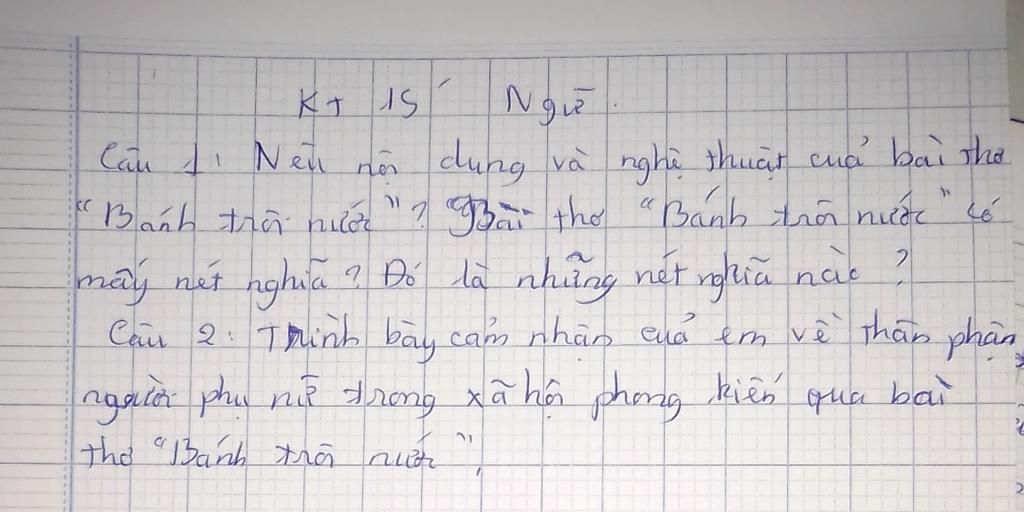 KT 15' Ngữ.
Câu 1: Nêu nội dung và nghệ thuật của bài thơ
"Bánh trôi nước"? Bài thơ "Bánh trôi nước" có
mấy nét nghĩa? Đó là những nét nghĩa nào?
Câu 2: Trình bày cảm nhận của em về thân phận
người phụ nữ trong xã hội phong kiến qua bài
thơ "Bánh trôi nước".